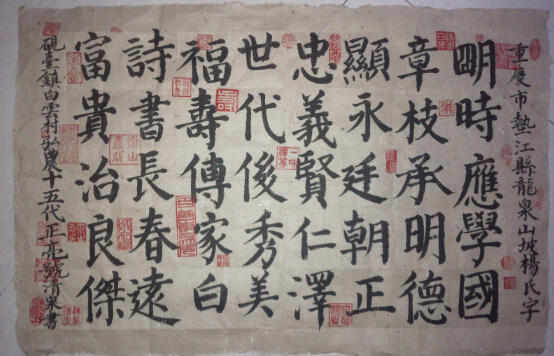 重慶市墊江縣龍泉山坡楊氏字
明時應學國
章枝承明德
顯永廷朝正
忠義賢仁澤
世代俊秀美
福壽傳家白
詩書長春遠
富貴治良傑
硯臺鎮白雲村弘農十五代正亮號清書